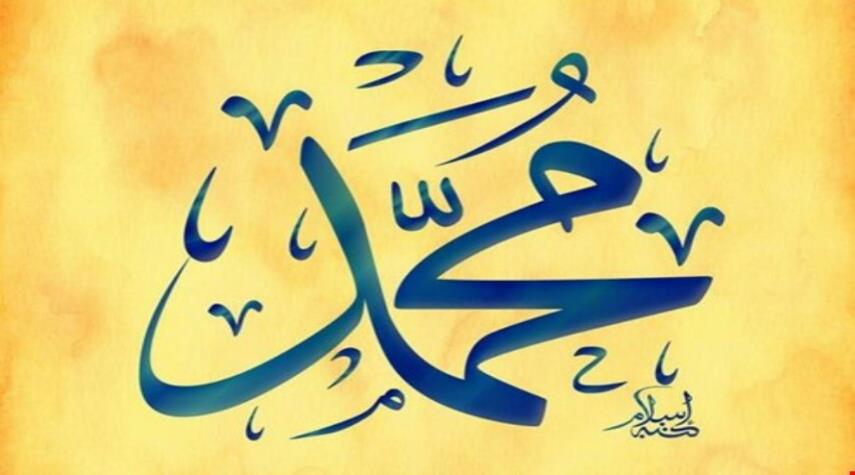 مُحمَّد
كتبه إسلام